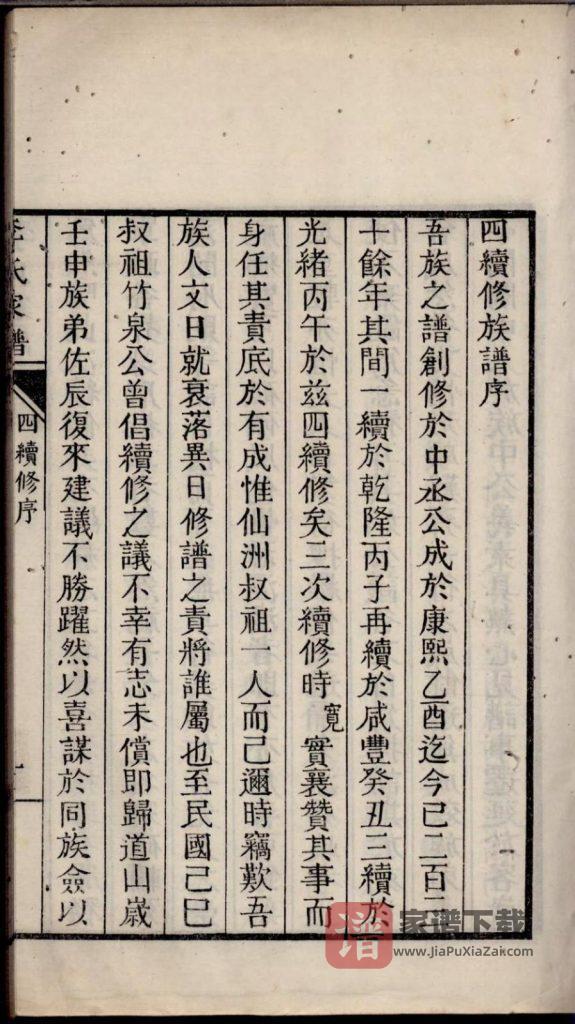 四續修族譜序
吾族之譜創修於中丞公成於康熙乙酉迄今已二百二
十餘年其間一續於乾隆丙子再續於咸豐癸丑三續於
光緒丙午於茲四續修矣三次續修時寬實襄贊其事而
身任其責底於有成惟仙洲叔祖一人而已邇時竊歎吾
族人文日就衰落異日修譜之責將誰屬也至民國己巳
叔祖竹泉公曾倡續修之議不幸有志未償即歸道山歲
壬申族弟佐辰復來建議不勝躍然以喜謀於同族僉以
氏家譜
四續修序
一
譜
家谱下载
www.JiaPuXiaZai.com